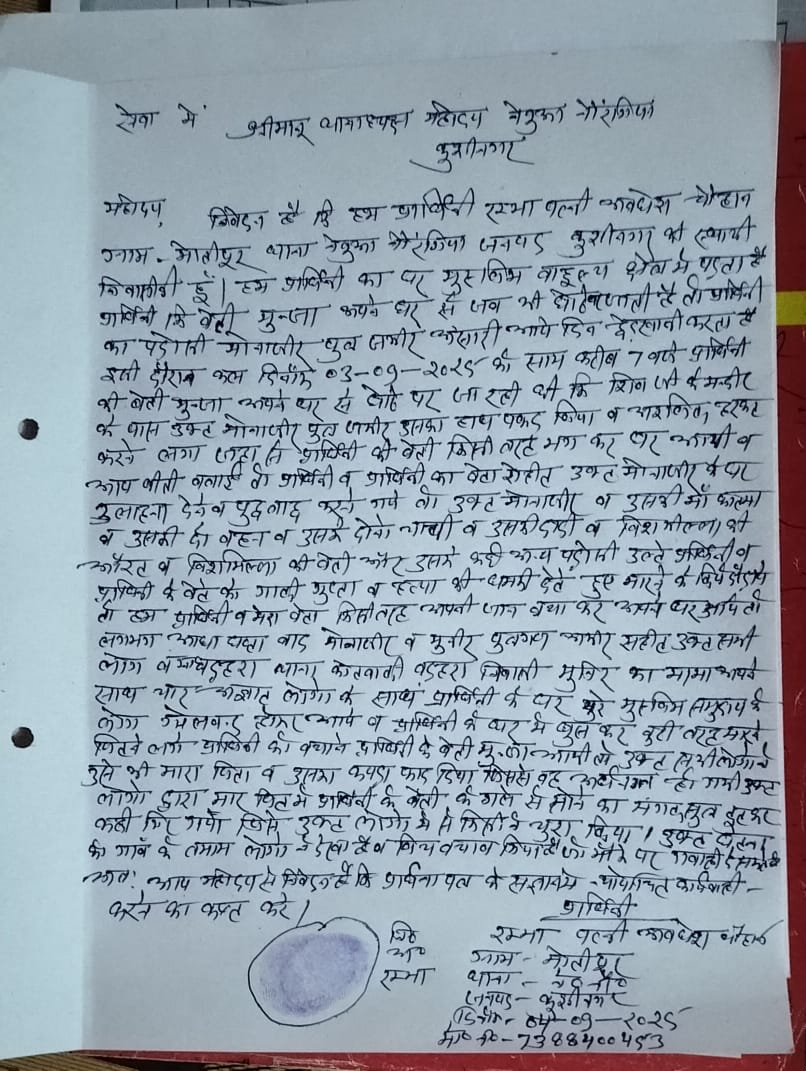 सेवा में श्रीमान् थानाध्यक्ष महोदय नेबुआ नौरंगिया
कुशीनगर
महोदय, निवेदन है कि हम प्रार्थिनी रम्भा पत्नी अवधेश चौहान
ग्राम - मोतीपुर थाना नेबुआ नौरंगिया जनपद कुशीनगर की स्थायी
निवासीनी हूँ। हम प्रार्थिनी का घर मुस्लिम बाहुल्य क्षेत्र में पड़ता है
प्रार्थिनी कि बेटी मुन्जा अपने घर से जब भी जाती है तो प्रार्थिनी
का पड़ोसी मोनाजीर पुत्र जमीर अंसारी आये दिन छेड़खानी करता है
इसी दौरान कल दिनाँक 03-09-2025 को साम करीब 7 बजे प्रार्थिनी
की बेटी मुन्जा अपने घर से कोठे पर जा रही थी कि शिव जी के मन्दीर
के पास उक्त मोनाजीर पुत्र जमीर उसका हाथ पकड़ लिया व अश्लिल हरकत
करने लगा जहा से प्रार्थिनी की बेटी किसी तरह भग कर घर आयी व
आप बीती बताई तो प्रार्थिनी व प्रार्थिनी का बेटा रोहीत उक्त मोनाजीर के घर
उलाहना देने व पुछताछ करने गये तो उक्त मोनाजीर व उसकी माँ
व उसकी दो बहन व उसके दोनो भाभी व उसकी दादी व बिशमील्ला की
औरत व बिशमिल्ला की बेटी और उसके कई अन्य पड़ोसी उल्टे प्रार्थिनी व
प्रार्थिनी के बेटे को गाली गुप्ता व हत्या की धमकी देते हुए मारने के लिये दौड़ाये
तो हम प्रार्थिनी व मेरा बेटा किसी तरह अपनी जान बचा कर अपने घर आये तो
लगभग आधा घन्टा बाद मोनाजीर व मुनीर पुत्रगण जमीर सहीत उक्त सभी
लोग व थाना कोतवाली पडरौना निवासी मुनिर का मामा अपने
साथ चार अज्ञात लोगो के साथ प्रार्थिनी के घर पुरे मुस्लिम समुदाय के
लोग गोलबन्द होकर आये व प्रार्थिनी के घर में घुस कर बुरी तरह मारने
पिटने लगे प्रार्थिनी को बचाने प्रार्थिनी के बेटी मुन्जा आयी तो उक्त सभी लोगो ने
उसे भी मारा पिटा व उसका कपड़ा फाड़ दिया जिससे वह अर्धनग्न हो गयी उक्त
लोगो द्वारा मार पिट में प्रार्थिनी के बेटी के गले से सोने का मंगलसुत्र टुट कर
कही गिर गया जिसे उक्त लोगो में से किसी ने चुरा लिया। उक्त घटना
को गाँव के तमाम लोगो ने देखा है व बिच बचाव किया है जो मौके पर गवाही दे सकते है
अतः आप महोदय से निवेदन है कि प्रार्थना पत्र के सज्ञानमे यथोचित कार्यवाही -
करने का कष्ट करे।
प्रार्थिनी
रम्भा पत्नी अवधेश चौहान
ग्राम - मोतीपुर
थाना - ने0 नौ0
जनपद - कुशीनगर
दिनाँक - 04-09-2025
मो0 नं0 - 7388400453
नि0
अं0
रम्भा